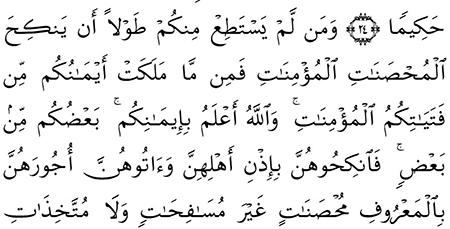 حَكِيمًا ﴿٢٤﴾ وَمَن لَّمْ يَسْتَطِعْ مِنكُمْ طَوْلاً أَن يَنكِحَ
ٱلْمُحْصَنَـٰتِ ٱلْمُؤْمِنَـٰتِ فَمِن مَّا مَلَكَتْ أَيْمَـٰنُكُم مِّن
فَتَيَـٰتِكُمُ ٱلْمُؤْمِنَـٰتِ ۚ وَٱللَّهُ أَعْلَمُ بِإِيمَـٰنِكُم ۚ بَعْضُكُم مِّنۢ
بَعْضٍ ۚ فَٱنكِحُوهُنَّ بِإِذْنِ أَهْلِهِنَّ وَءَاتُوهُنَّ أُجُورَهُنَّ
بِٱلْمَعْرُوفِ مُحْصَنَـٰتٍ غَيْرَ مُسَـٰفِحَـٰتٍ وَلَا مُتَّخِذَٰتِ